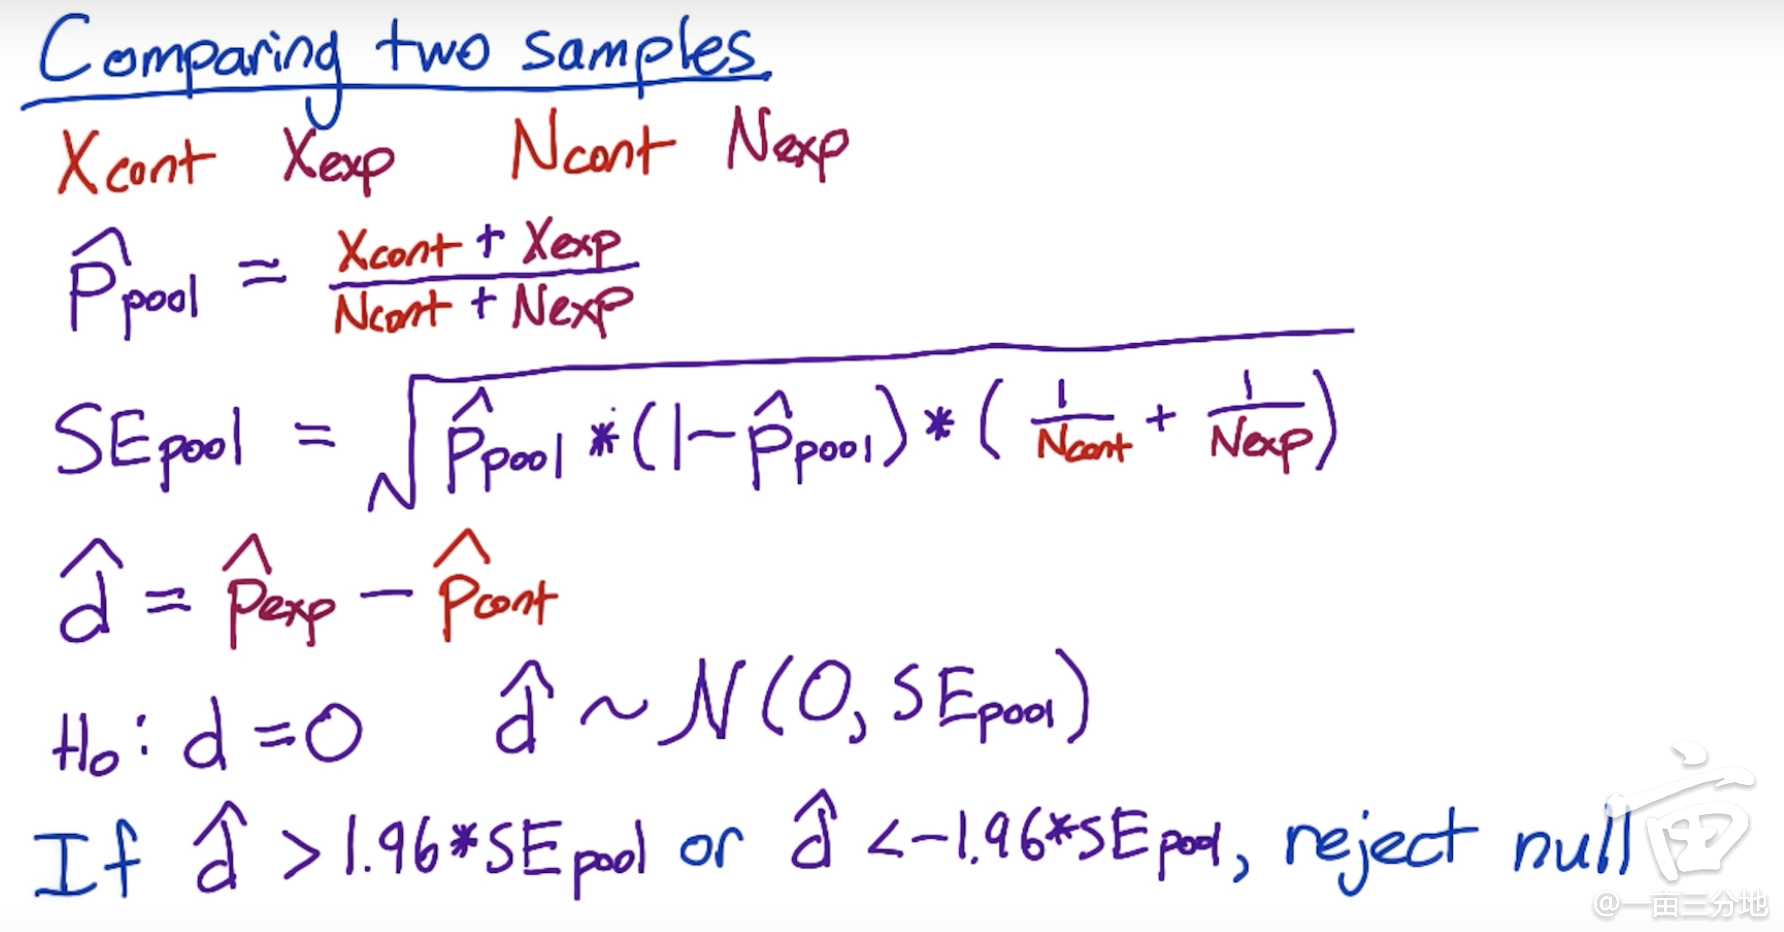 Comparing two samples
Xcont Xexp Ncont Nexp
p̂pool = (Xcont + Xexp) / (Ncont + Nexp)
SEpool = √(p̂pool * (1-p̂pool) * (1/Ncont + 1/Nexp))
d̂ = p̂exp - p̂cont
H₀: d = 0 d̂ ~ N(0, SEpool)
If d̂ > 1.96*SEpool or d̂ < -1.96*SEpool, reject null
亩
@一亩三分地